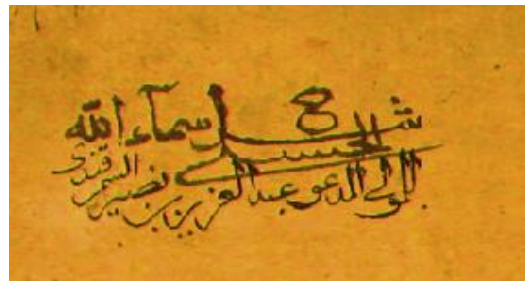 شرح اسماء الله
الحسنى
للمولى المدعو عبد العزيز بن نصير السمرقندى